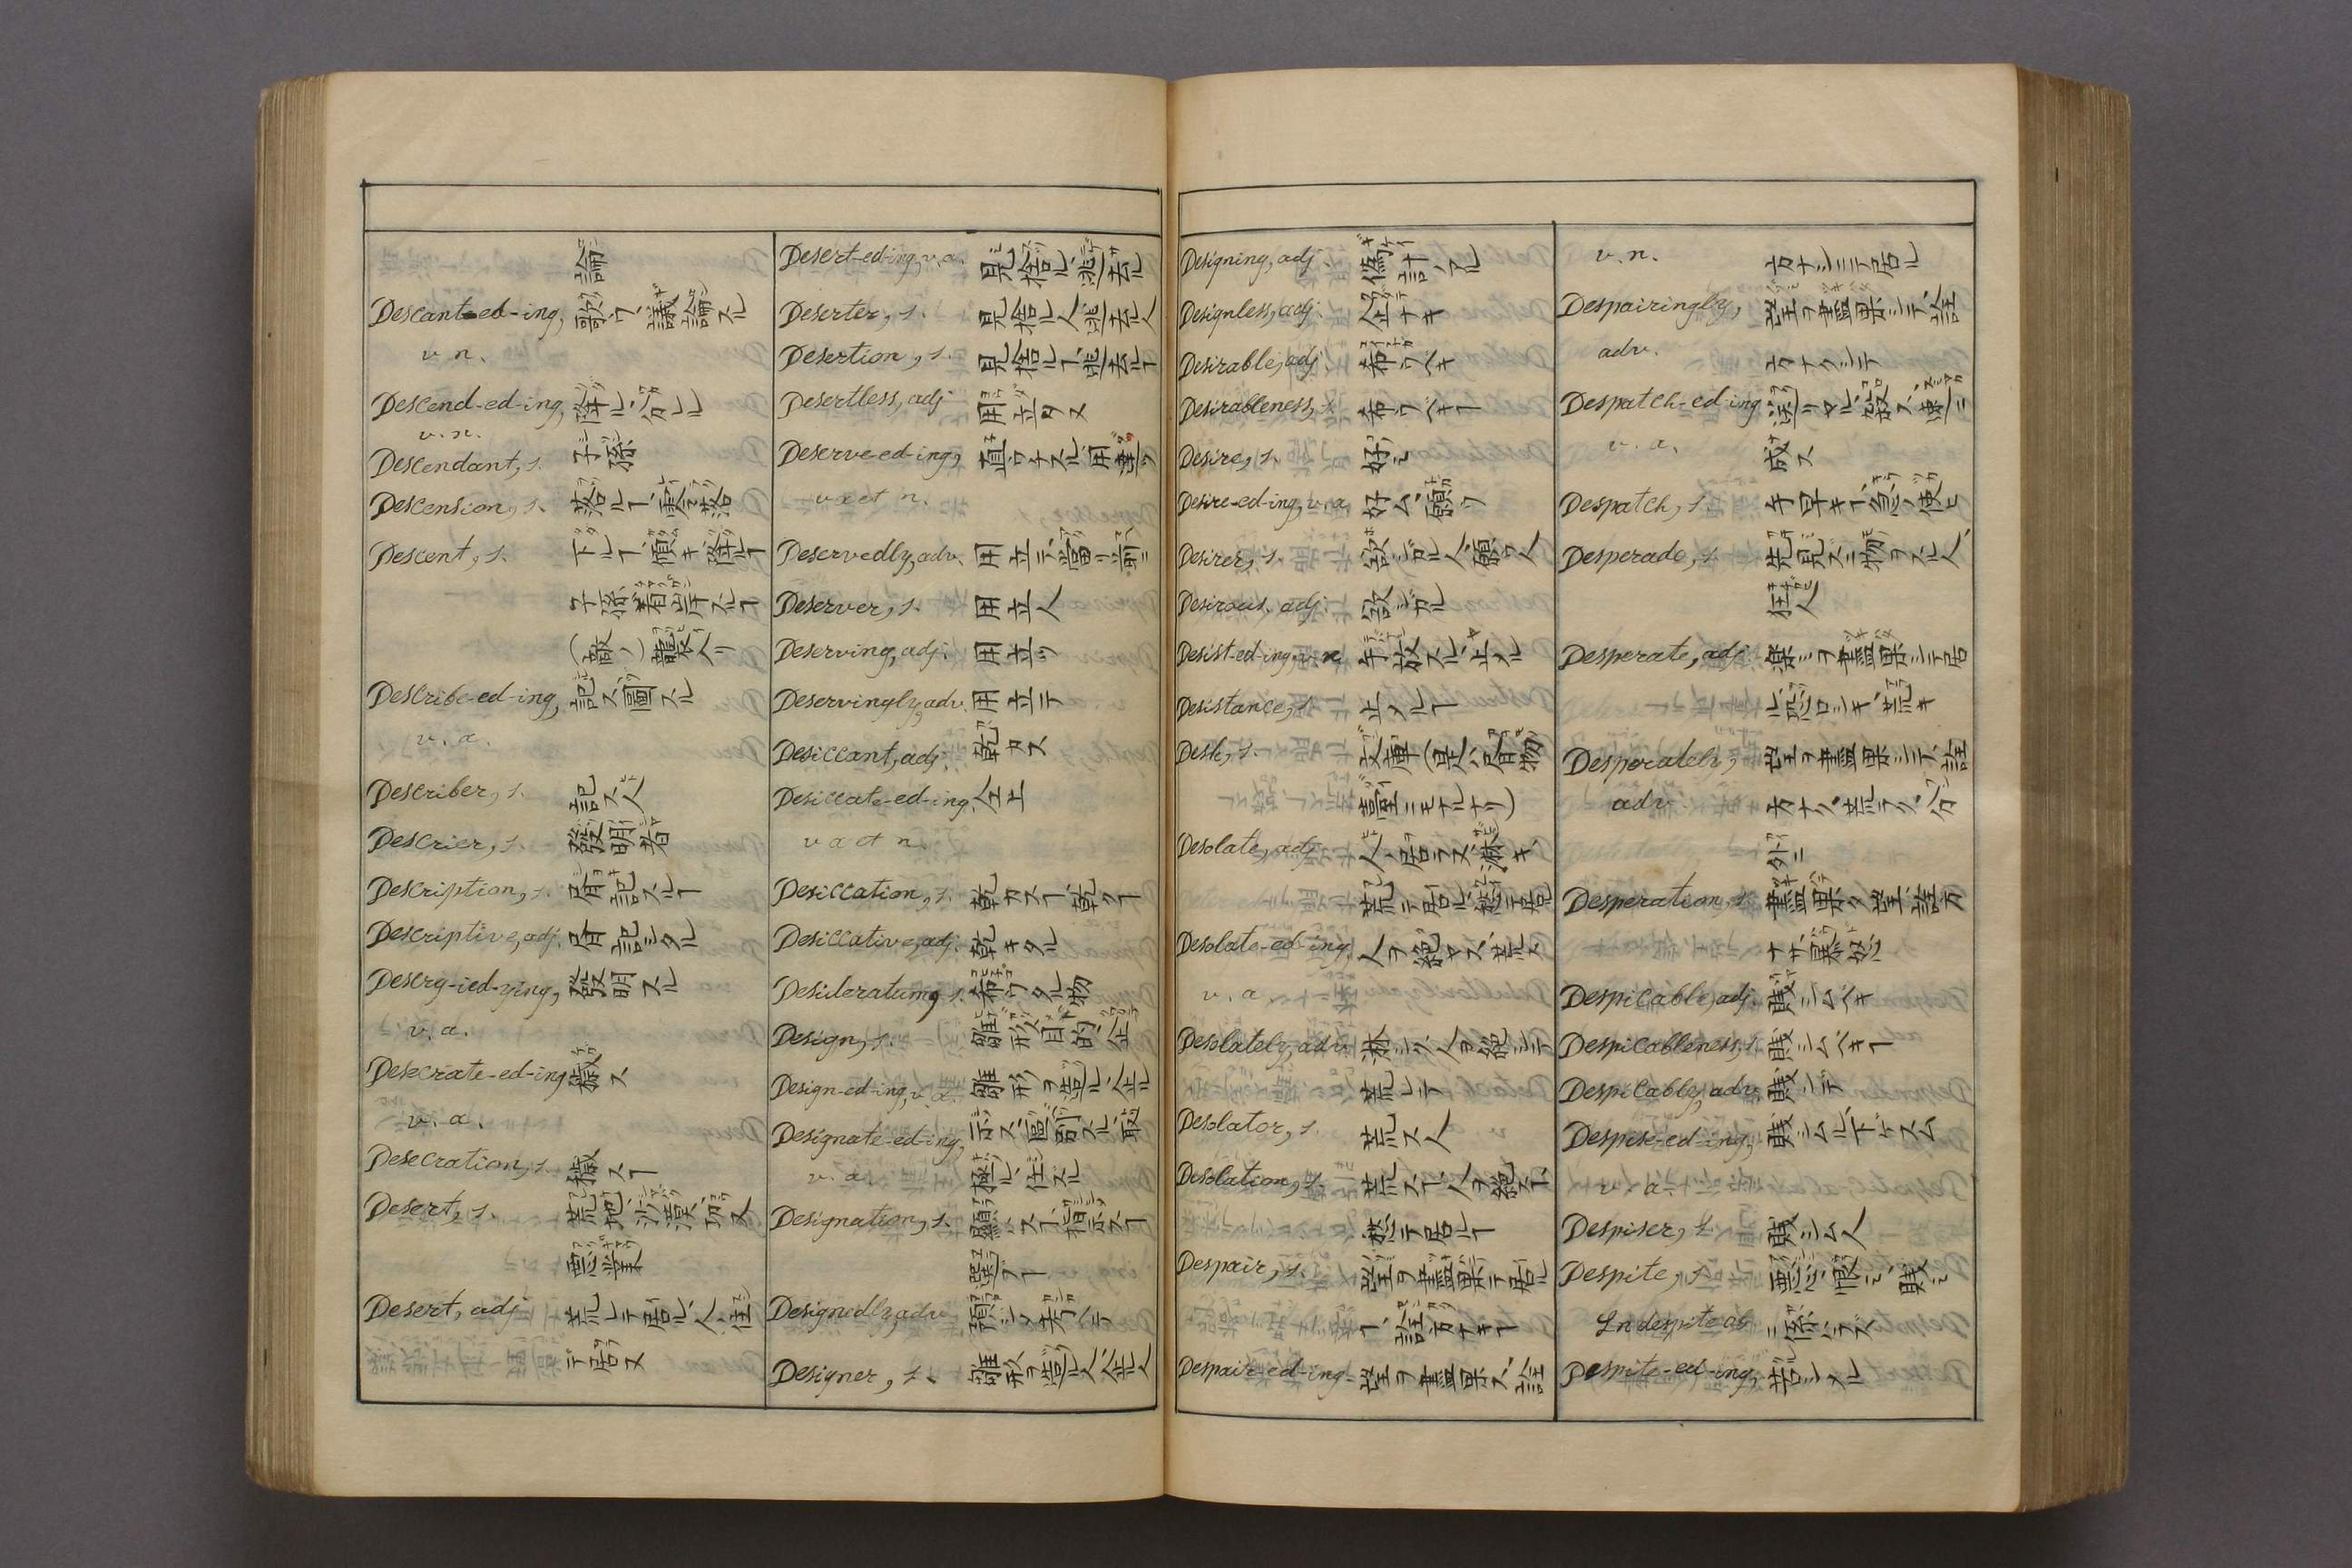 論
Descant-ed-ing, 歌フ、議論スル
v. n.
Descend-ed-ing, 降ル、分レル
v. n.
Descendant, s. 子孫
Descension, s. 落ルヿ、零落
Descent, s. 下ルヿ、傾キ、降ルヿ
子孫、着岸スルヿ
(敵ノ)襲入リ
Describe-ed-ing, 記ス、圖スル
v. a.
Describer, s. 記ス人
Descrier, s. 發明者
Description, s. 眉記スルヿ
Descriptive, adj. 眉記シタル
Descry-ied-ying, 發明スル
v. a.
Desecrate-ed-ing, 穢ス
v. a.
Desecration, s. 穢スヿ
Desert, s. 荒地、沙漠、功又
悪業
Desert, adj. 荒レテ居ル、人ノ住
デ居ヌ
Desert-ed-ing, v. a. 見捨ル、逃去ル
Deserter, s. 見捨ル人、逃去ル人
Desertion, s. 見捨ルヿ、逃去ルヿ
Desertless, adj. 用立ヌ
Deserve-ed-ing, 直ウチスル、用達ツ
v. a et n.
Deservedly, adv. 用立テ、當リ前ニ
Deserver, s. 用立人
Deserving, adj. 用立ツ
Deservingly, adv. 用立テ
Desiccant, adj. 乾カス
Desiccate-ed-ing, 仝上
v a et n.
Desiccation, s. 乾カスヿ、乾クヿ
Desiccative, adj. 乾キタル
Desideratum, s. 希フタル物
Design, s. 雛形、目的、企
Design-ed-ing, v. a. 雛形ヲ造ル、企ル
Designate-ed-ing, 示ス、區別スル、取
v. a. 極ル、任ズル
Designation, s. 顯ハスヿ、指示スヿ
選ブヿ
Designedly, adv. 預ジメ考ヘテ
Designer, s. 雛形ヲ造ル人、企ル人
Designing, adj. 偽計ノアル
Designless, adj. 企ナキ
Desirable, adj. 希フベキ
Desirableness, s. 希フベキヿ
Desire, s. 好ミ
Desire-ed-ing, v. a. 好ム、願フ
Desirer, s. 欲シガル人、願フ人
Desirous, adj. 欲シガル
Desist-ed-ing, v. n. 手放スル、止メル
Desistance, s. 止メルヿ
Desk, s. 文庫(是ハ眉物
臺ニモナルナリ)
Desolate, adj. 人ノ居ラヌ、淋キ、
荒テ居ル、愁テ居
Desolate-ed-ing, 人ヲ絶ヤス、荒ス
v. a.
Desolately, adv. 淋シク、人ヲ絶シテ
荒レテ
Desolator, s. 荒ス人
Desolation, s. 荒スヿ、人ヲ絶スヿ、
愁テ居ルヿ
Despair, s. 望ヲ盡果テ居ル
ヿ、詮方ナキヿ
Despair-ed-ing, 望ヲ盡果ス、詮
v. n. 方ナシニテ居ル
Despairingly, 望ヲ盡果シテ、詮
adv. 方ナクシテ
Despatch-ed-ing, 送リヤル、殺ス、速ニ
v. a. 成ス
Despatch, s. 手早キヿ、急ノ使ヒ
Desperado, s. 先見ズニ物ヲスル人、
狂人
Desperate, adj. 樂ミヲ盡果シテ居
ル、恐ロシキ、荒キ
Desperately, 望ヲ盡果シテ、詮
adv. 方ナク、荒ラク、分
外ニ
Desperation, s. 盡果タ望、詮方
ナサ、暴怒
Despicable, adj. 賤シムベキ
Despicableness, s. 賤シムベキヿ
Despicably, adv. 賤シデ
Despise-ed-ing, 賤シムル、下ゲスム
v. a.
Despiser, s. 賤シム人
Despite, s. 悪心、恨ミ、賤ミ
In despite of ニ係ハラズ
Despite-ed-ing, 苦シメル